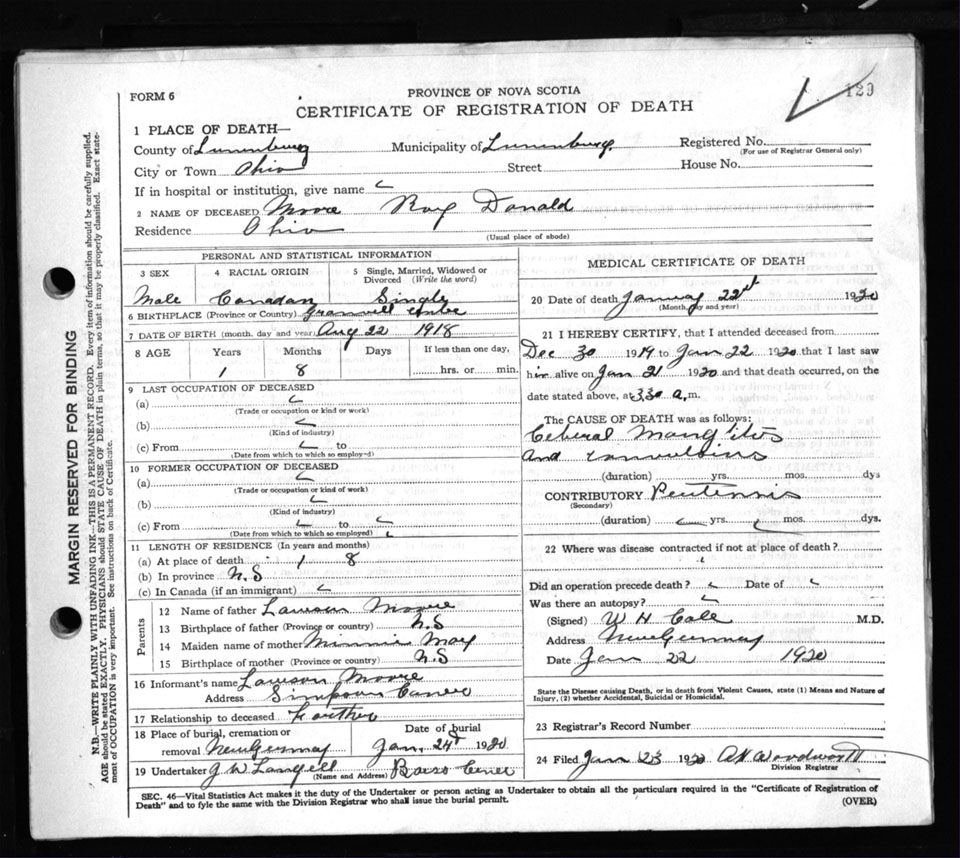 129
FORM 6
PROVINCE OF NOVA SCOTIA
CERTIFICATE OF REGISTRATION OF DEATH
1 PLACE OF DEATH—
County of Lunenburg Municipality of Lunenburg Registered No.
(For use of Registrar General only)
City or Town Ohio Street House No.
If in hospital or institution, give name
2 NAME OF DECEASED Moore Roy Donald
Residence Ohio
(Usual place of abode)
PERSONAL AND STATISTICAL INFORMATION
3 SEX 4 RACIAL ORIGIN 5 Single, Married, Widowed or Divorced (Write the word)
Male Canadan Single
6 BIRTHPLACE (Province or Country)
7 DATE OF BIRTH (month, day and year) Aug 22 1918
8 AGE Years Months Days If less than one day,
1 8 hrs. or min.
9 LAST OCCUPATION OF DECEASED
(a)
(Trade or occupation or kind or work)
(b)
(Kind of industry)
(c) From to
(Date from which to which so employ-d)
10 FORMER OCCUPATION OF DECEASED
(a)
(Trade or occupation or kind of work)
(b)
(Kind of industry)
(c) From to
(Date from which to which so employed)
11 LENGTH OF RESIDENCE (In years and months)
(a) At place of death 1 8
(b) In province N.S
(c) In Canada (if an immigrant)
Parents
12 Name of father Lawson Moore
13 Birthplace of father (Province or country) N.S
14 Maiden name of mother Minnie May
15 Birthplace of mother (Province or country) N.S
16 Informant's name Lawson Moore
Address Simpson Corner
17 Relationship to deceased Farther
18 Place of burial, cremation or Date of burial
removal New Germany Jan. 24 1920
19 Undertaker J W Langell
(Name and Address)
MEDICAL CERTIFICATE OF DEATH
20 Date of death January 22 1920
(Month, day and year)
21 I HEREBY CERTIFY, that I attended deceased from
Dec 30 1919 to Jan 22 1920 that I last saw
him alive on Jan 21 1920 and that death occurred, on the
date stated above, at 3.30 a.m.
The CAUSE OF DEATH was as follows:
and convulsions
(duration) yrs. mos. dys
CONTRIBUTORY
(Secondary)
(duration) yrs. mos. dys.
22 Where was disease contracted if not at place of death?
Did an operation precede death? Date of
Was there an autopsy?
(Signed) W H Cole M.D.
Address New Germany
Date Jan 22 1920
State the Disease causing Death, or in death from Violent Causes, state (1) Means and Nature of
Injury, (2) whether Accidental, Suicidal or Homicidal.
23 Registrar's Record Number
24 Filed Jan 23 1920 Woodworth
Division Registrar
SEC. 46—Vital Statistics Act makes it the duty of the Undertaker or person acting as Undertaker to obtain all the particulars required in the "Certificate of Registration of
Death" and to fyle the same with the Division Registrar who shall issue the burial permit. (OVER)
MARGIN RESERVED FOR BINDING
N.B.—WRITE PLAINLY WITH UNFADING INK—THIS IS A PERMANENT RECORD. Every item of information should be carefully supplied.
AGE should be stated EXACTLY. PHYSICIANS should STATE CAUSE OF DEATH in plain terms, so that it may be properly classified. Exact state-
ment of OCCUPATION is very important. See instructions on back of Certificate.